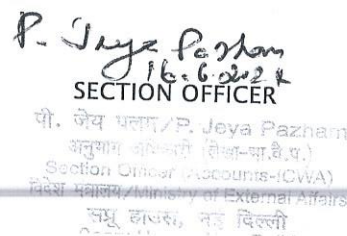 P. Jeya Pazham
16.6.2021
SECTION OFFICER
पी. जेय पलाम/P. Jeya Pazham
अनुभाग अधिकारी (लेखा-भा.वै.प.)
Section Officer (Accounts-ICWA)
विदेश मंत्रालय/Ministry of External Affairs
सप्रू हाउस, नई दिल्ली